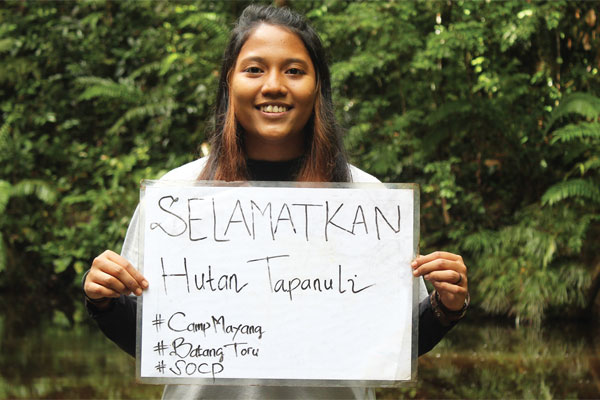 SELAMATKAN
Hutan Tapanuli
#CampMayang
#BatangToru
#SOCP